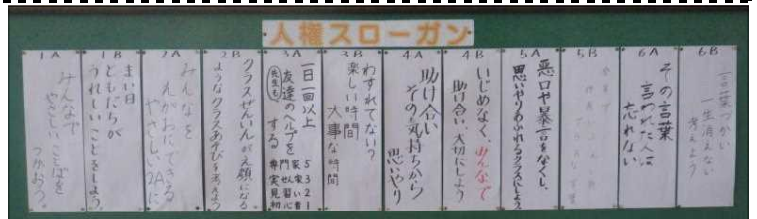 人権スローガン
1A
みんなで
やさしいことばを
つかおう。
1B
まい日
ともだちが
うれしいことをしよう。
2A
みんなを
えがおにできる
やさしい2Aに
2B
クラスぜんいんが え顔になる
ようなクラスあそびを考えよう
3A
一日一回以上
友達のヘルプを
先生も
する
専門家5
実せん家3
見習い2
初心者1
3B
わすれてない?
楽しい時間
大事な時間
4A
助け合い
その気持ちから
思いやり
4B
いじめなく、みんなで
助け合い、大切にしよう
5A
悪口や暴言をなくし、
思いやりあふれるクラスにしよう
5B
6A
その言葉
言われた人は
忘れない
6B
言葉づかい
一生消えない
考えよう